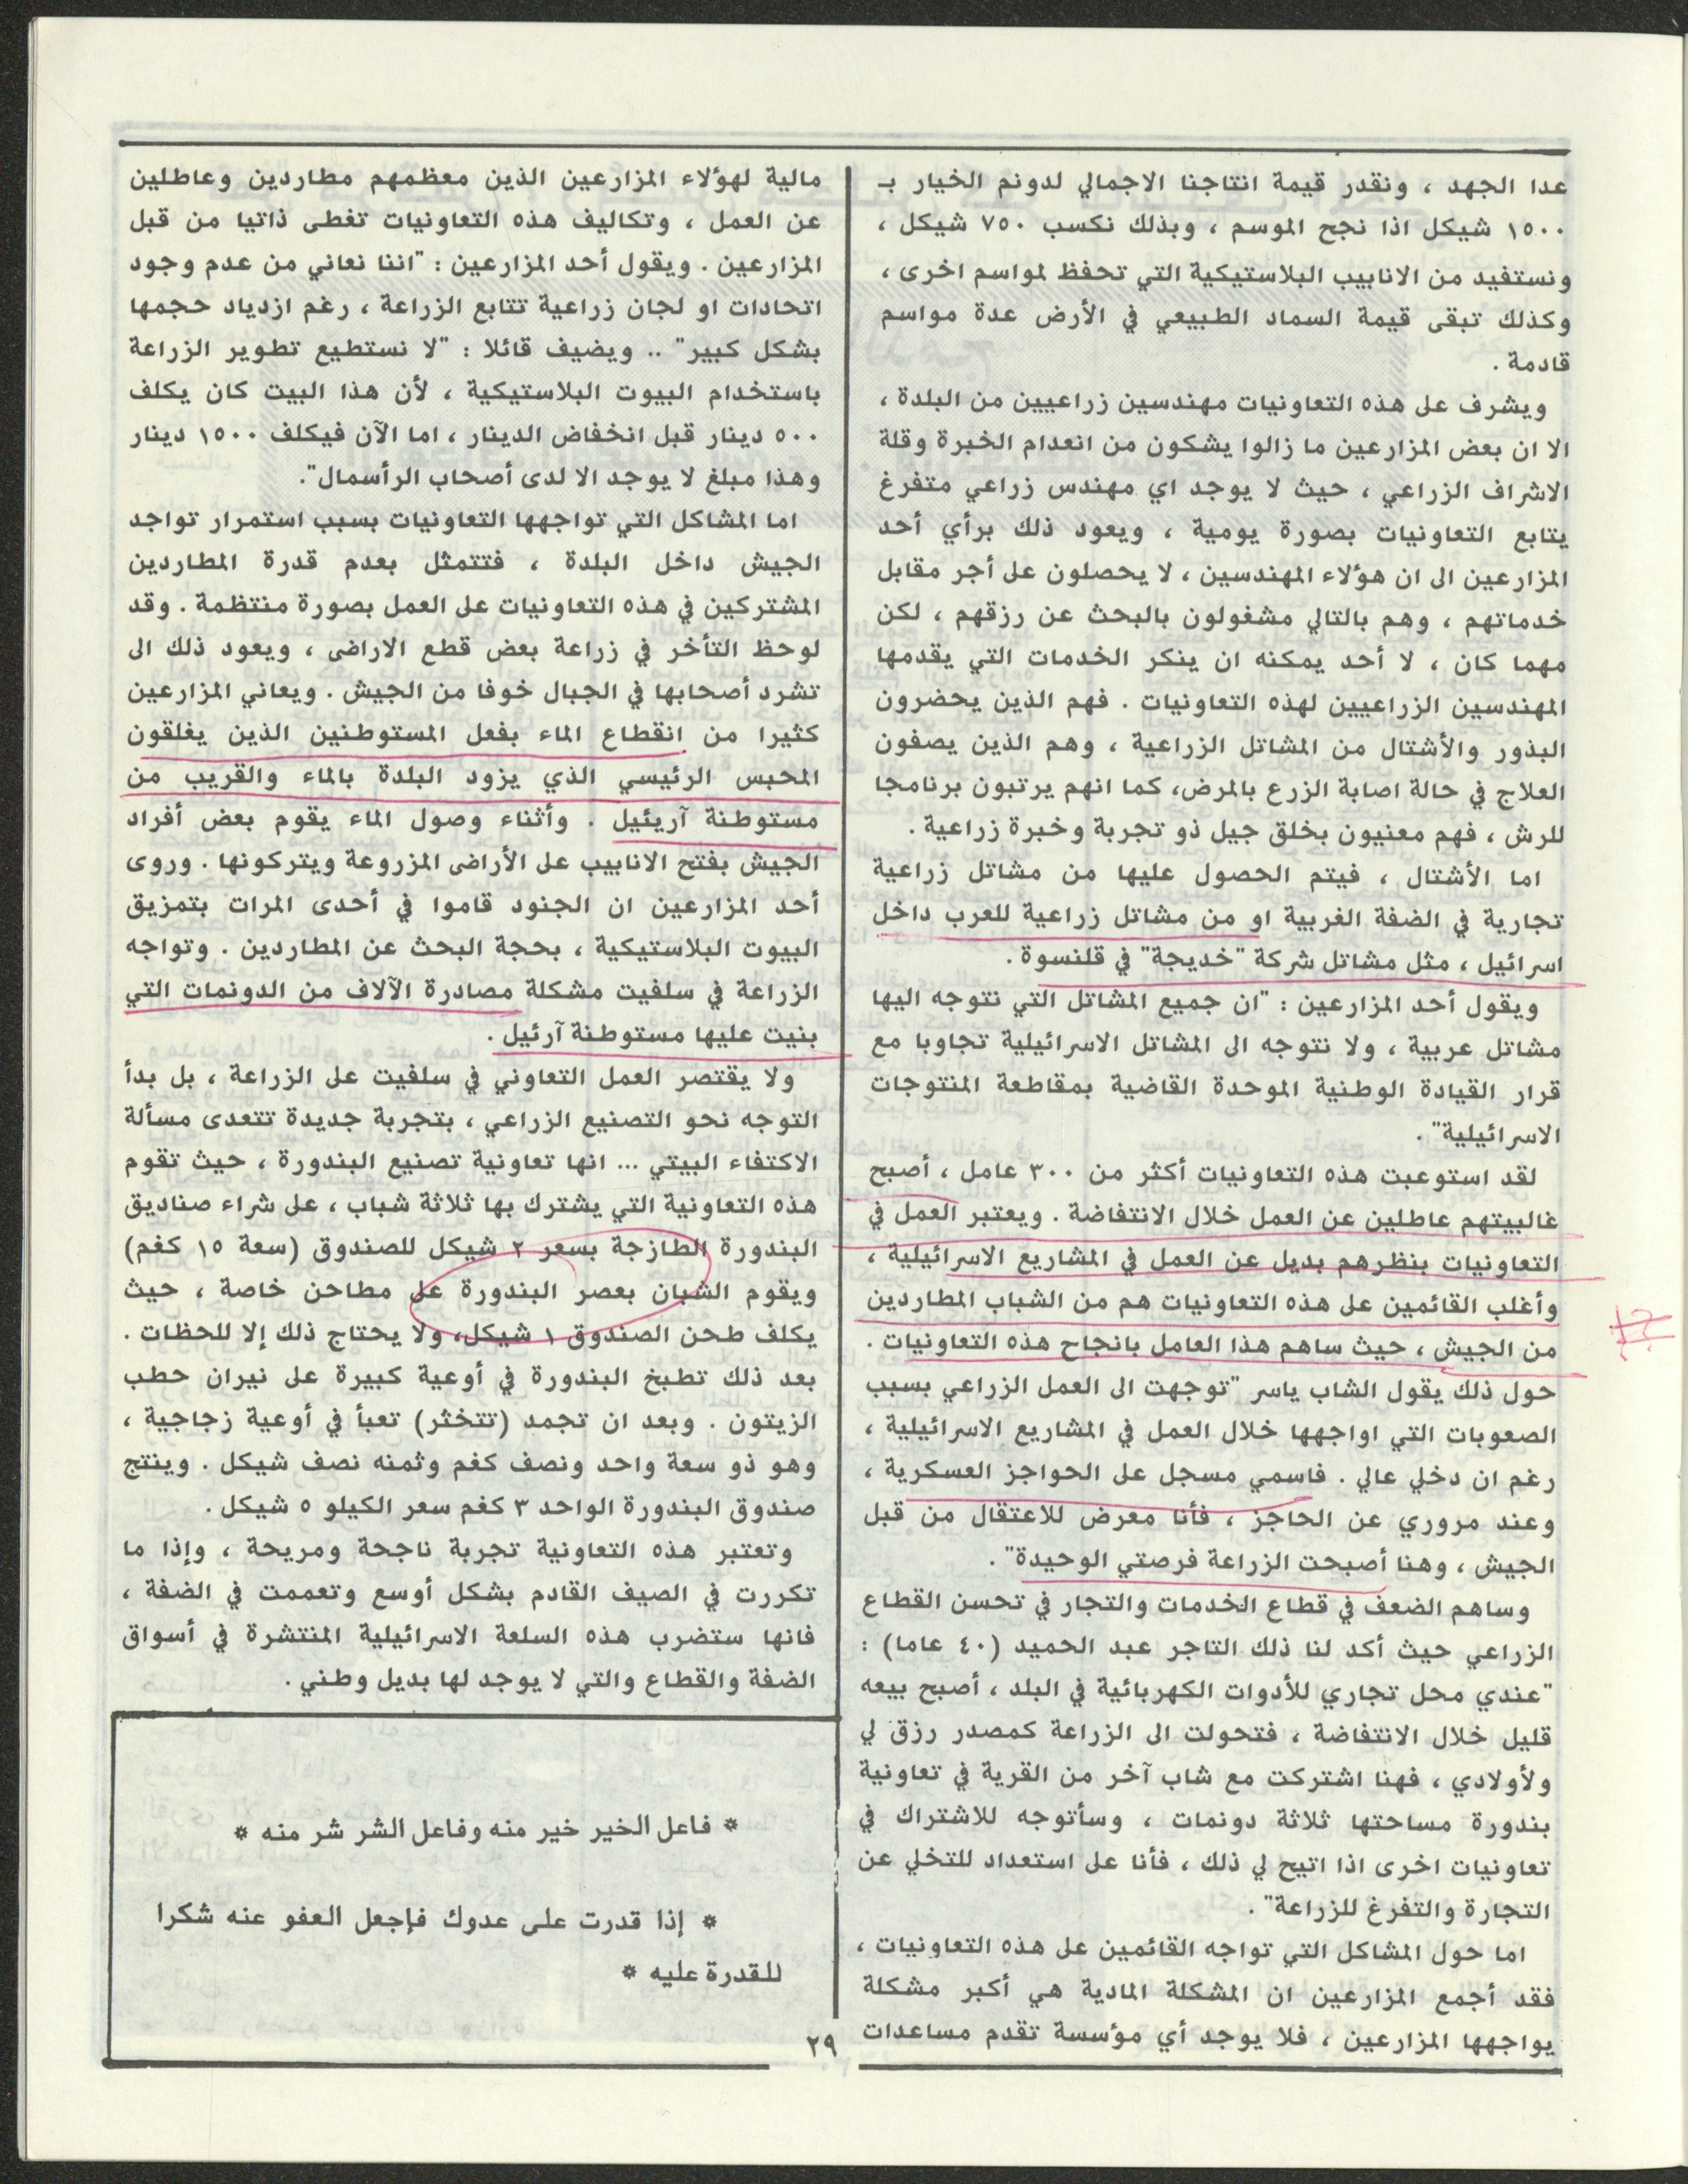 عدا الجهد ، ونقدر قيمة انتاجنا الاجمالي لدونم الخيار بـ
١٥٠٠ شيكل اذا نجح الموسم ، وبذلك نكسب ٧٥٠ شيكل ،
ونستفيد من الانابيب البلاستيكية التي تحفظ لمواسم اخرى ،
وكذلك تبقى قيمة السماد الطبيعي في الأرض عدة مواسم
قادمة .
ويشرف على هذه التعاونيات مهندسين زراعيين من البلدة ،
الا ان بعض المزارعين ما زالوا يشكون من انعدام الخبرة وقلة
الاشراف الزراعي ، حيث لا يوجد اي مهندس زراعي متفرغ
يتابع التعاونيات بصورة يومية ، ويعود ذلك برأي أحد
المزارعين الى ان هؤلاء المهندسين ، لا يحصلون على أجر مقابل
خدماتهم ، وهم بالتالي مشغولون بالبحث عن رزقهم ، لكن
مهما كان ، لا أحد يمكنه ان ينكر الخدمات التي يقدمها
المهندسين الزراعيين لهذه التعاونيات . فهم الذين يحضرون
البذور والأشتال من المشاتل الزراعية ، وهم الذين يصفون
العلاج في حالة اصابة الزرع بالمرض، كما انهم يرتبون برنامجا
للرش ، فهم معنيون بخلق جيل ذو تجربة وخبرة زراعية .
اما الأشتال ، فيتم الحصول عليها من مشاتل زراعية
تجارية في الضفة الغربية او من مشاتل زراعية للعرب داخل
اسرائيل ، مثل مشاتل شركة "خديجة" في قلنسوة .
ويقول أحد المزارعين : "ان جميع المشاتل التي نتوجه اليها
مشاتل عربية ، ولا نتوجه الى المشاتل الاسرائيلية تجاوبا مع
قرار القيادة الوطنية الموحدة القاضية بمقاطعة المنتوجات
الاسرائيلية" .
لقد استوعبت هذه التعاونيات أكثر من ٣٠٠ عامل ، أصبح
غالبيتهم عاطلين عن العمل خلال الانتفاضة . ويعتبر العمل في
التعاونيات بنظرهم بديل عن العمل في المشاريع الاسرائيلية ،
وأغلب القائمين على هذه التعاونيات هم من الشباب المطاردين
من الجيش ، حيث ساهم هذا العامل بانجاح هذه التعاونيات .
حول ذلك يقول الشاب ياسر "توجهت الى العمل الزراعي بسبب
الصعوبات التي اواجهها خلال العمل في المشاريع الاسرائيلية ،
رغم ان دخلي عالي . فاسمي مسجل على الحواجز العسكرية ،
وعند مروري عن الحاجز ، فأنا معرض للاعتقال من قبل
الجيش ، وهنا أصبحت الزراعة فرصتي الوحيدة" .
وساهم الضعف في قطاع الخدمات والتجار في تحسن القطاع
الزراعي حيث أكد لنا ذلك التاجر عبد الحميد (٤٠ عاما) :
"عندي محل تجاري للأدوات الكهربائية في البلد ، أصبح بيعه
قليل خلال الانتفاضة ، فتحولت الى الزراعة كمصدر رزق لي
ولأولادي ، فهنا اشتركت مع شاب آخر من القرية في تعاونية
بندورة مساحتها ثلاثة دونمات ، وسأتوجه للاشتراك في
تعاونيات اخرى اذا اتيح لي ذلك ، فأنا على استعداد للتخلي عن
التجارة والتفرغ للزراعة" .
اما حول المشاكل التي تواجه القائمين على هذه التعاونيات ،
فقد أجمع المزارعين ان المشكلة المادية هي أكبر مشكلة
يواجهها المزارعين ، فلا يوجد أي مؤسسة تقدم مساعدات
مالية لهؤلاء المزارعين الذين معظمهم مطاردين وعاطلين
عن العمل ، وتكاليف هذه التعاونيات تغطى ذاتيا من قبل
المزارعين . ويقول أحد المزارعين : "اننا نعاني من عدم وجود
اتحادات او لجان زراعية تتابع الزراعة ، رغم ازدياد حجمها
بشكل كبير" .. ويضيف قائلا : "لا نستطيع تطوير الزراعة
باستخدام البيوت البلاستيكية ، لأن هذا البيت كان يكلف
٥٠٠ دينار قبل انخفاض الدينار ، اما الآن فيكلف ١٥٠٠ دينار
وهذا مبلغ لا يوجد الا لدى أصحاب الرأسمال".
اما المشاكل التي تواجهها التعاونيات بسبب استمرار تواجد
الجيش داخل البلدة ، فتتمثل بعدم قدرة المطاردين
المشتركين في هذه التعاونيات على العمل بصورة منتظمة . وقد
لوحظ التأخر في زراعة بعض قطع الاراضى ، ويعود ذلك الى
تشرد أصحابها في الجبال خوفا من الجيش . ويعاني المزارعين
كثيرا من انقطاع الماء بفعل المستوطنين الذين يغلقون
المحبس الرئيسي الذي يزود البلدة بالماء والقريب من
مستوطنة آريئيل . وأثناء وصول الماء يقوم بعض أفراد
الجيش بفتح الانابيب على الأراضى المزروعة ويتركونها . وروى
أحد المزارعين ان الجنود قاموا في أحدى المرات بتمزيق
البيوت البلاستيكية ، بحجة البحث عن المطاردين . وتواجه
الزراعة في سلفيت مشكلة مصادرة الآلاف من الدونمات التي
بنيت عليها مستوطنة آرئيل .
ولا يقتصر العمل التعاوني في سلفيت على الزراعة ، بل بدأ
التوجه نحو التصنيع الزراعي ، بتجربة جديدة تتعدى مسألة
الاكتفاء البيتي ... انها تعاونية تصنيع البندورة ، حيث تقوم
هذه التعاونية التي يشترك بها ثلاثة شباب ، على شراء صناديق
البندورة الطازجة بسعر ٢ شيكل للصندوق (سعة ١٥ كغم)
ويقوم الشبان بعصر البندورة على مطاحن خاصة ، حيث
يكلف طحن الصندوق ١ شيكل، ولا يحتاج ذلك إلا للحظات .
بعد ذلك تطبخ البندورة في أوعية كبيرة على نيران حطب
الزيتون . وبعد ان تجمد (تتخثر) تعبأ في أوعية زجاجية ،
وهو ذو سعة واحد ونصف كغم وثمنه نصف شيكل . وينتج
صندوق البندورة الواحد ٣ كغم سعر الكيلو ٥ شيكل .
وتعتبر هذه التعاونية تجربة ناجحة ومريحة ، وإذا ما
تكررت في الصيف القادم بشكل أوسع وتعممت في الضفة ،
فانها ستضرب هذه السلعة الاسرائيلية المنتشرة في أسواق
الضفة والقطاع والتي لا يوجد لها بديل وطني .
* فاعل الخير خير منه وفاعل الشر شر منه *
* إذا قدرت على عدوك فإجعل العفو عنه شكرا
للقدرة عليه *
٢٩